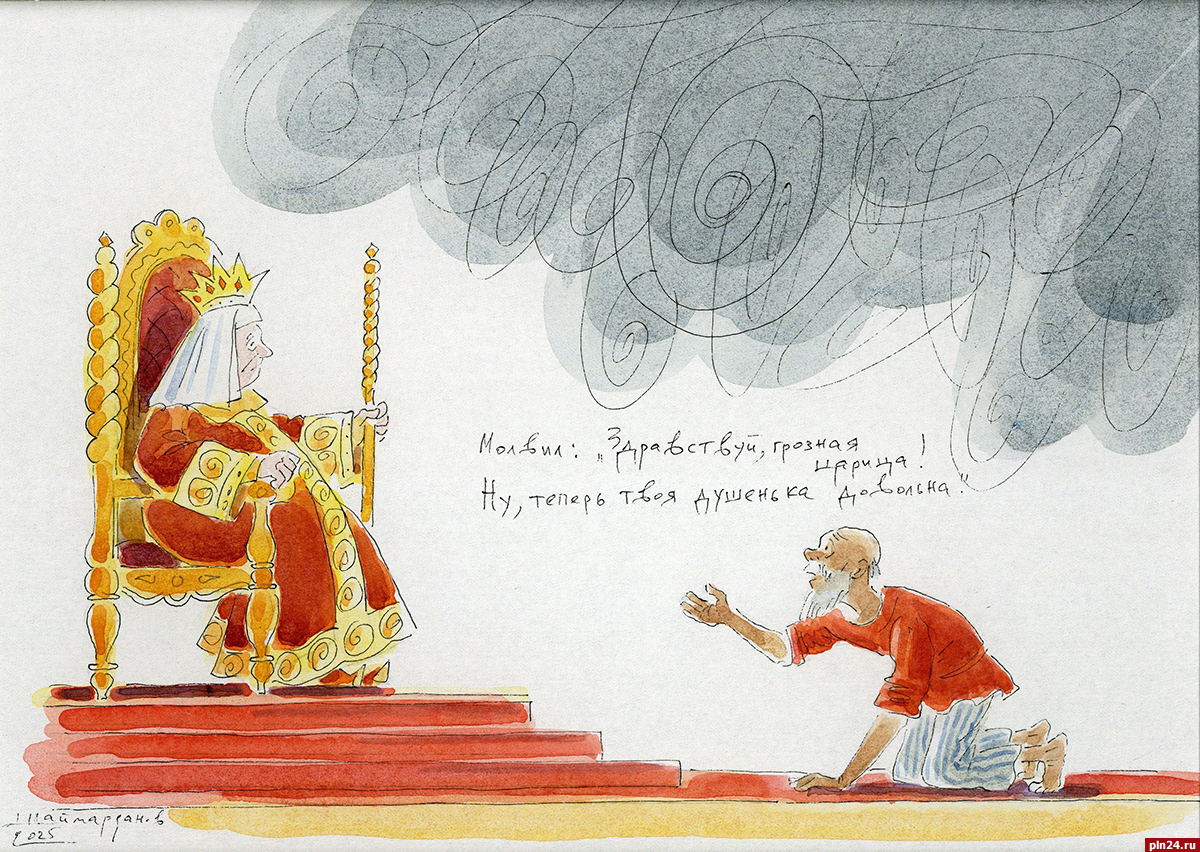 Молвил: „Здравствуй, грозная
царица!
Ну, теперь твоя душенька довольна."
Шаймарданов
2025
pln24.ru